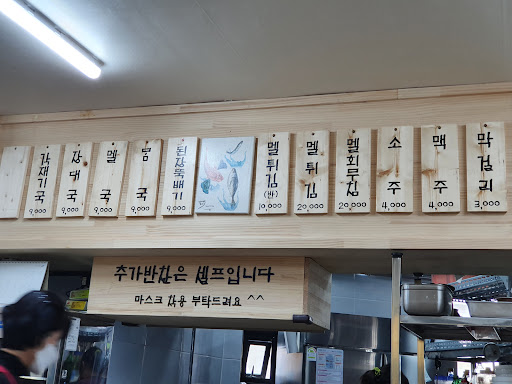 각재기국
9,000
장대국
9,000
멜국
9,000
몸국
9,000
된장뚝배기
9,000
멜튀김(반)
10,000
멜튀김
20,000
멜회무침
20,000
소주
4,000
맥주
4,000
막걸리
3,000
추가반찬은 셀프입니다
마스크 착용 부탁드려요 ^^